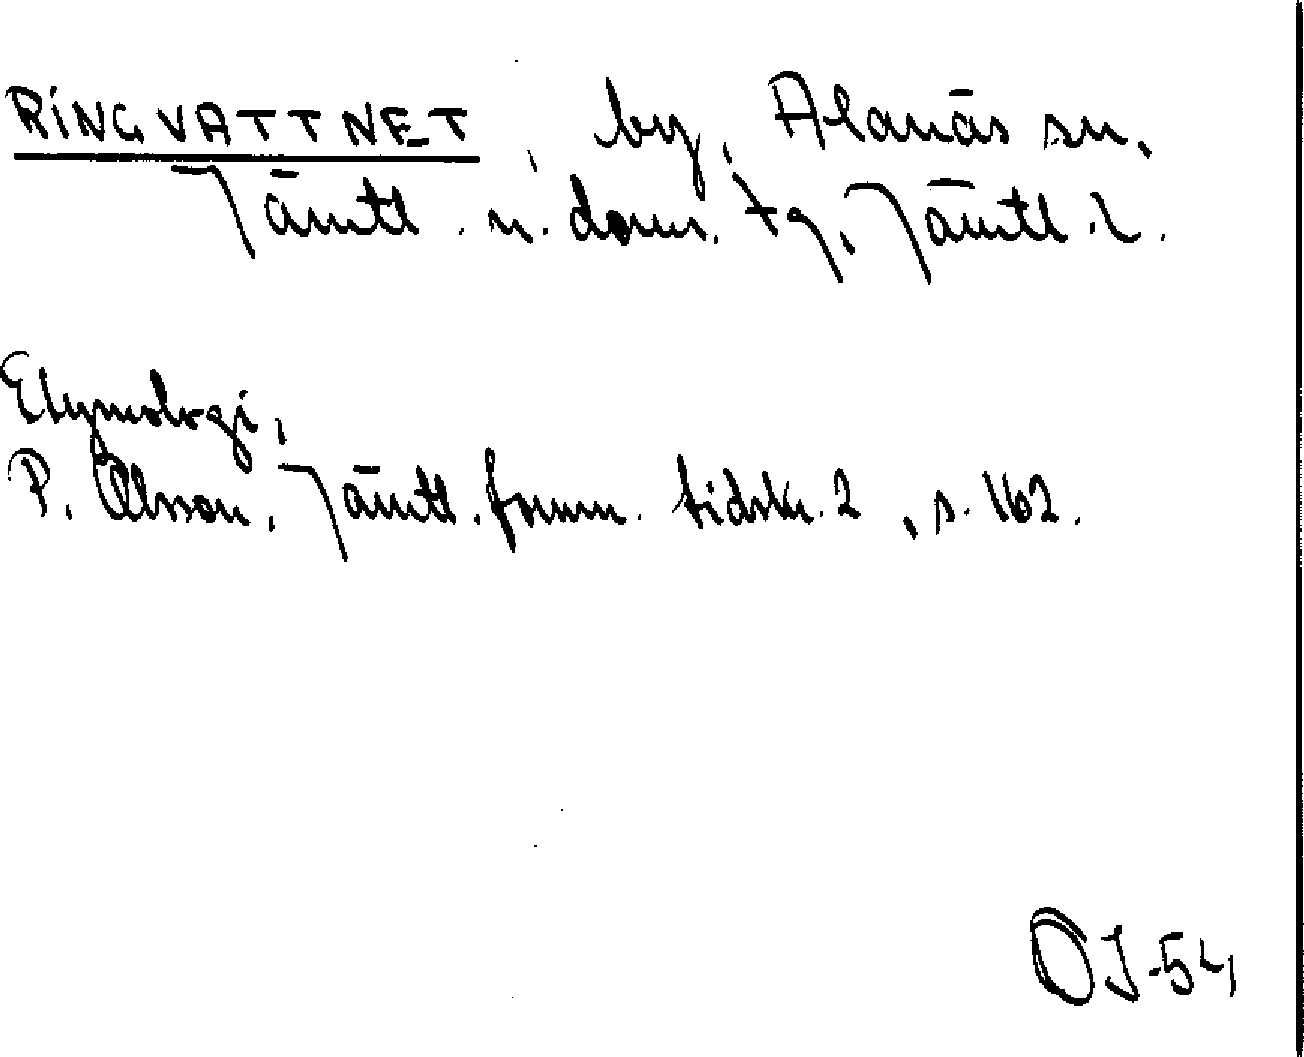 RINGVATTNET, by, Alanäs sn,
Jämtl. n. doms. tg, Jämtl. l.
Etymologi,
P. Olsson, Jämtl. fornm. tidskr. 2, s. 162.
OJ-54